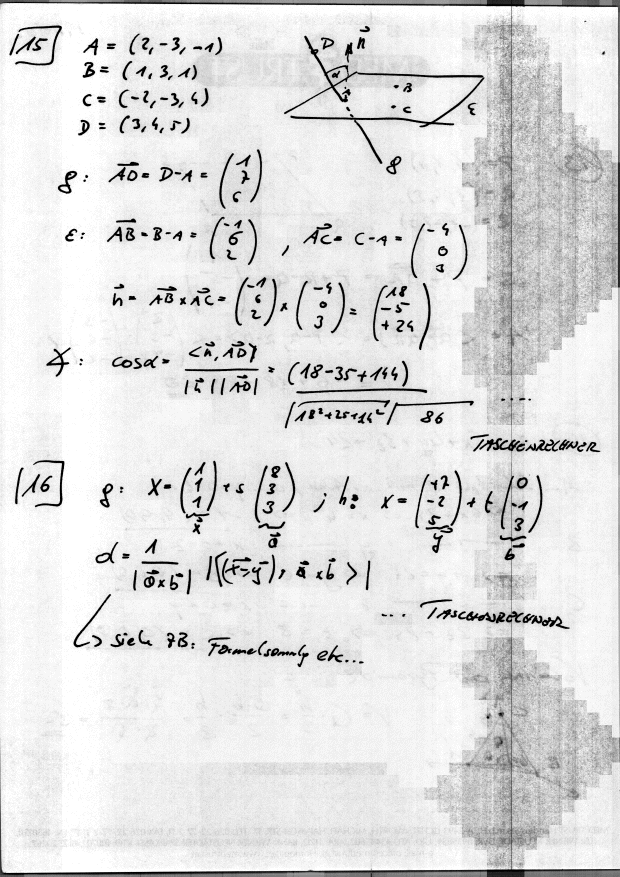 15
A = (2, -3, -1)
B = (1, 3, 1)
C = (-2, -3, 4)
D = (3, 4, 5)
D n⃗
α
B
C ε
g
g: AD⃗ = D-A = (1 7 6)
ε: AB⃗ = B-A = (-1 6 2) , AC⃗ = C-A = (-4 0 3)
n⃗ = AB⃗ × AC⃗ = (-1 6 2) × (-4 0 3) = (18 -5 +24)
∢: cosα = <n⃗, AD⃗> / |n⃗| |AD⃗| = (18-35+144) / √18²+25+14² √86 ....
TASCHENRECHNER
16
g: X = (1 1 1) + s (8 3 3) ; h: X = (+7 -2 5) + t (0 -1 3)
x⃗ a⃗ y⃗ b⃗
d = 1 / |a⃗×b⃗| |<(x⃗-y⃗), a⃗×b⃗>|
.... TASCHENRECHNER
↳ sieh ZB: Formelsammlg etc...